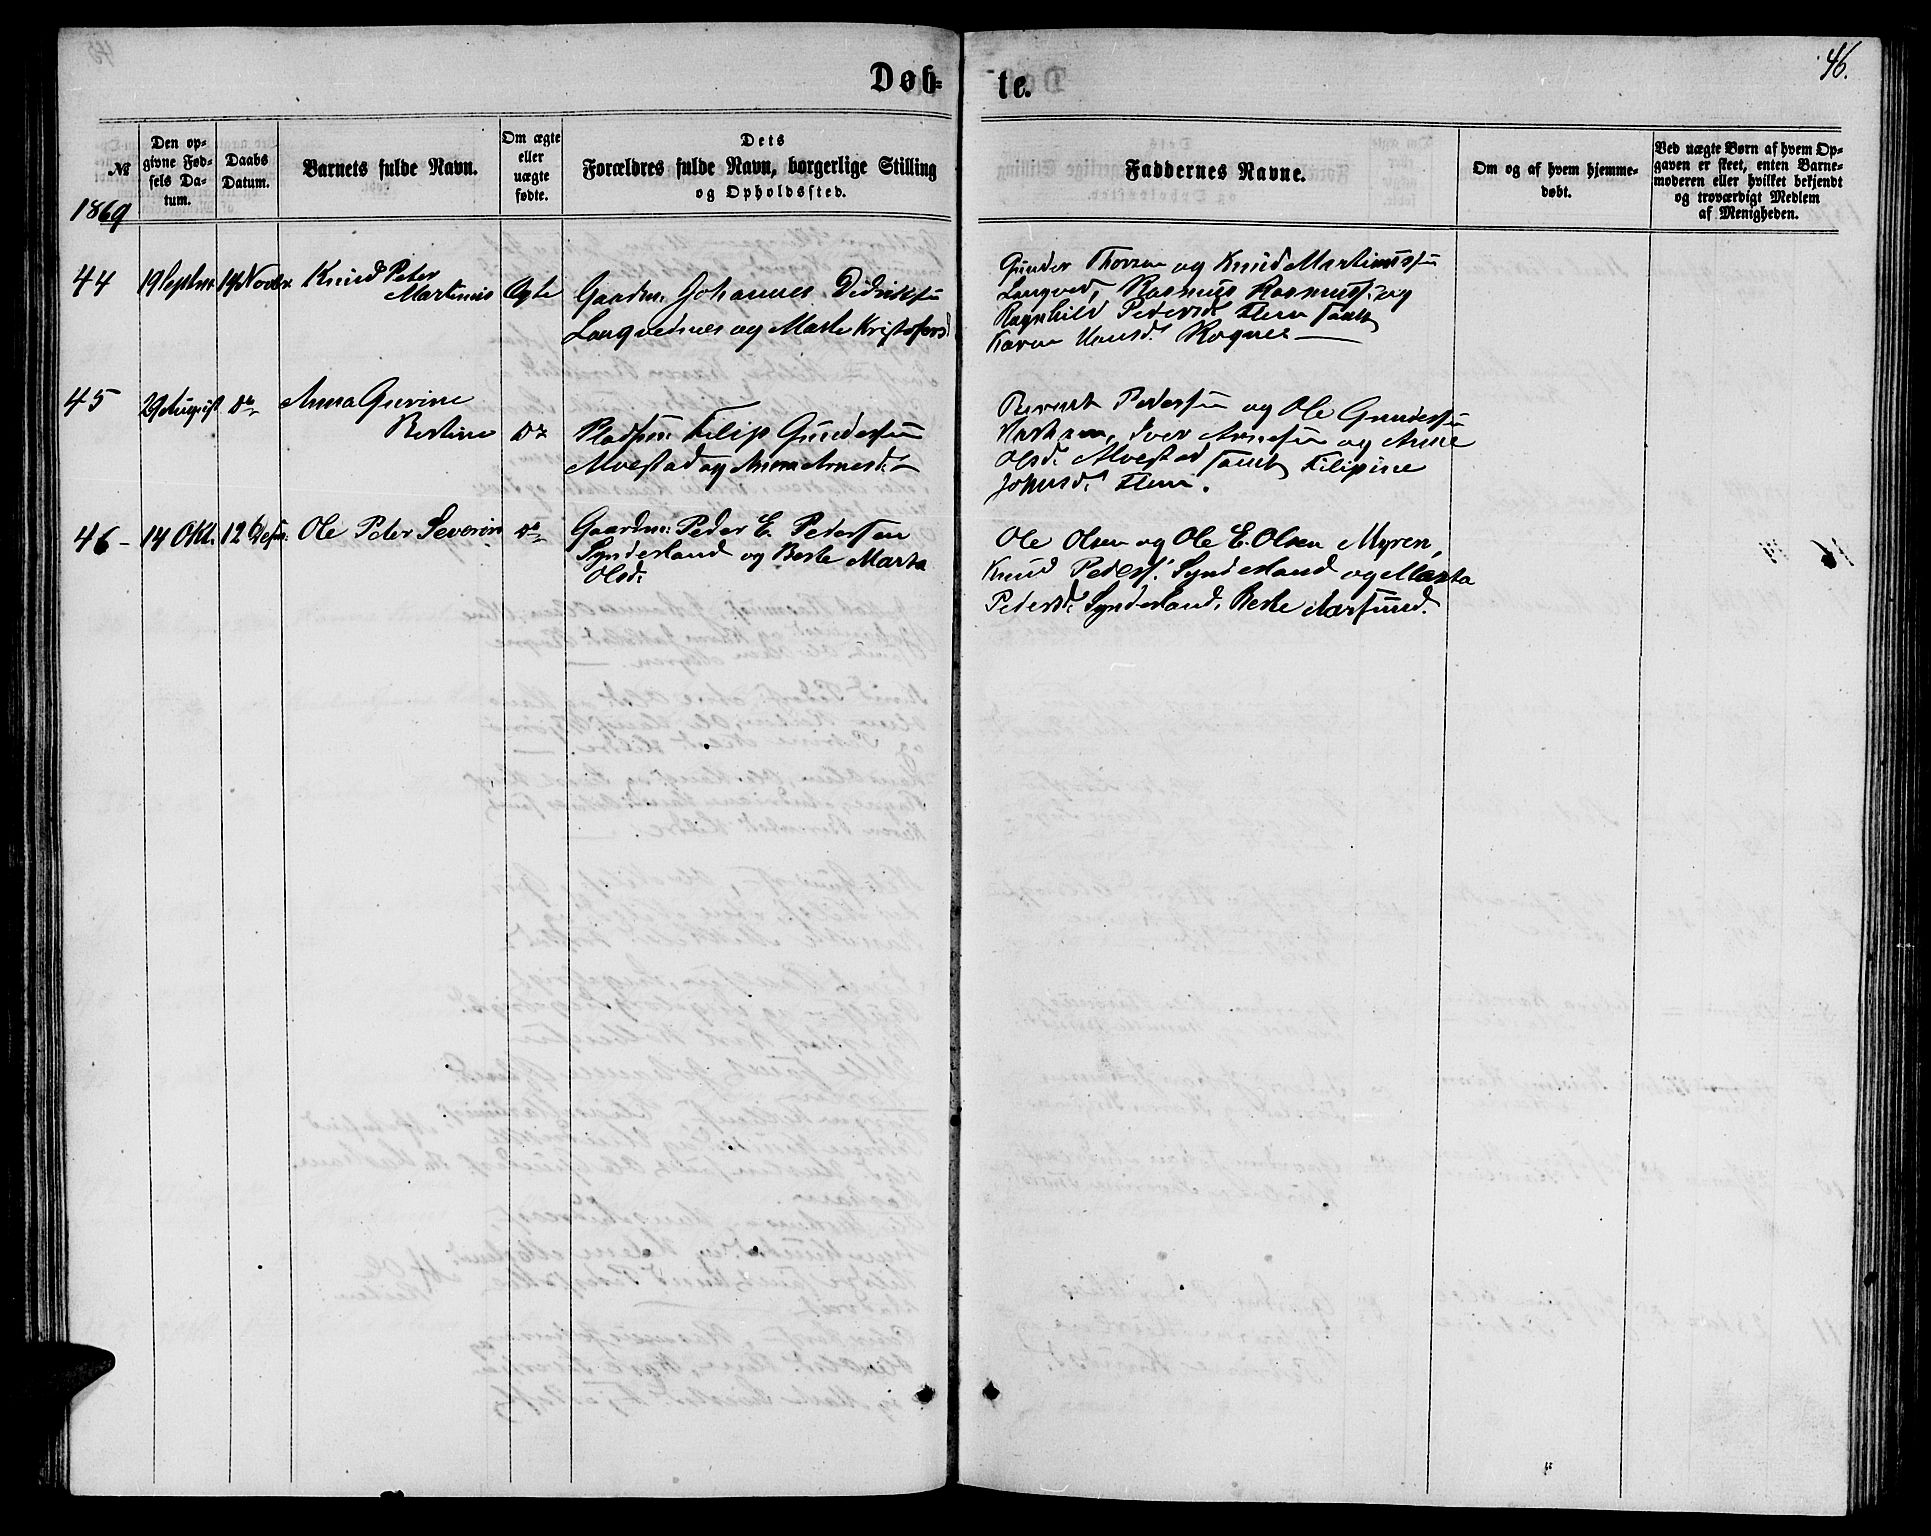 46.
Døb-
te.
№
Den op-
givne Fød-
sels Da-
tum.
Daabs
Datum.
Barnets fulde Navn.
Om ægte
eller
uægte
fødte.
Dets
Forældres fulde Navn, borgerlige Stilling
og Opholdssted.
Faddernes Navne.
Om og af hvem hjemme-
døbt.
Ved uægte Børn af hvem Op-
gaven er skeet, enten Barne-
moderen eller hvilket bekjendt
og troværdigt Medlem
af Menigheden.
1869
44
19 Septbr
19 Novbr.
Knud Peter
Martinus
Ægte
Gaardm: Johannes Didriksen
Longvednes og Marte Kristofersd
Gunder Thorsen og Knud Martinussen
Longved, Rasmus Rasmuss: og
Ragnhild Pedersd. Flem samt
Karen Hansd. Rognes —
45
29 August
Do
Anna Gurine
Bertine
Do
Pladsm: Filip Gundersen
Alvestad og Anna Arnesd. —
Berent Pedersen og Ole Gundersen
Harham, Iver Arnesen og Anne
Olsd. Alvestad samt Filipine
Johnsd. Flem.
46 -
14 Okt.
12 Desbr:
Ole Peter Severin
Do
Gaardm: Peder E. Petersen
Synderland og Berte Marta
Olsd.
Ole Olsen og Ole E. Olsen Myren,
Knud Peders. Synderland og Marta
Petersd. Synderland, Berte Aarsund.